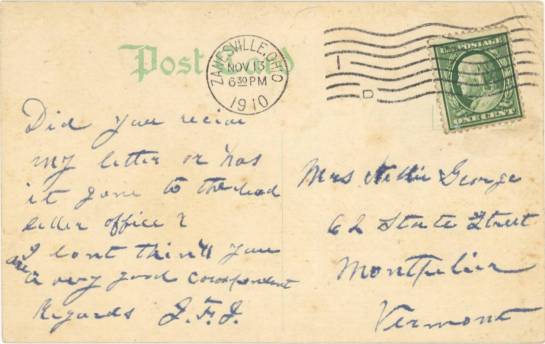 Post Card
ZANESVILLE, OHIO
NOV 13
6 30 PM
1910
1
D
U.S. POSTAGE
ONE CENT
Did you reciev
my letter or has
it gone to the dead
letter office?
I dont think you
are
a very good corospondent
Regards J. F. J.
Mrs Nellie George
62 State Street
Montpelier
Vermont